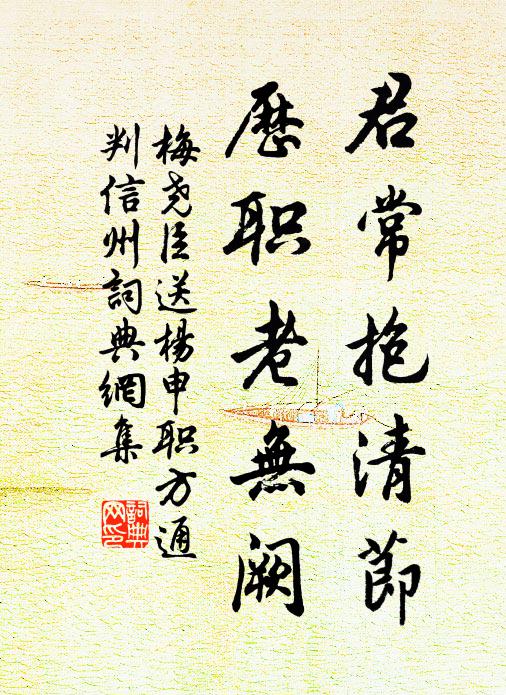 君常抱清節
歷职老無阙
梅尧臣送楊申职方通
判信州詞典網集
詞典
网印